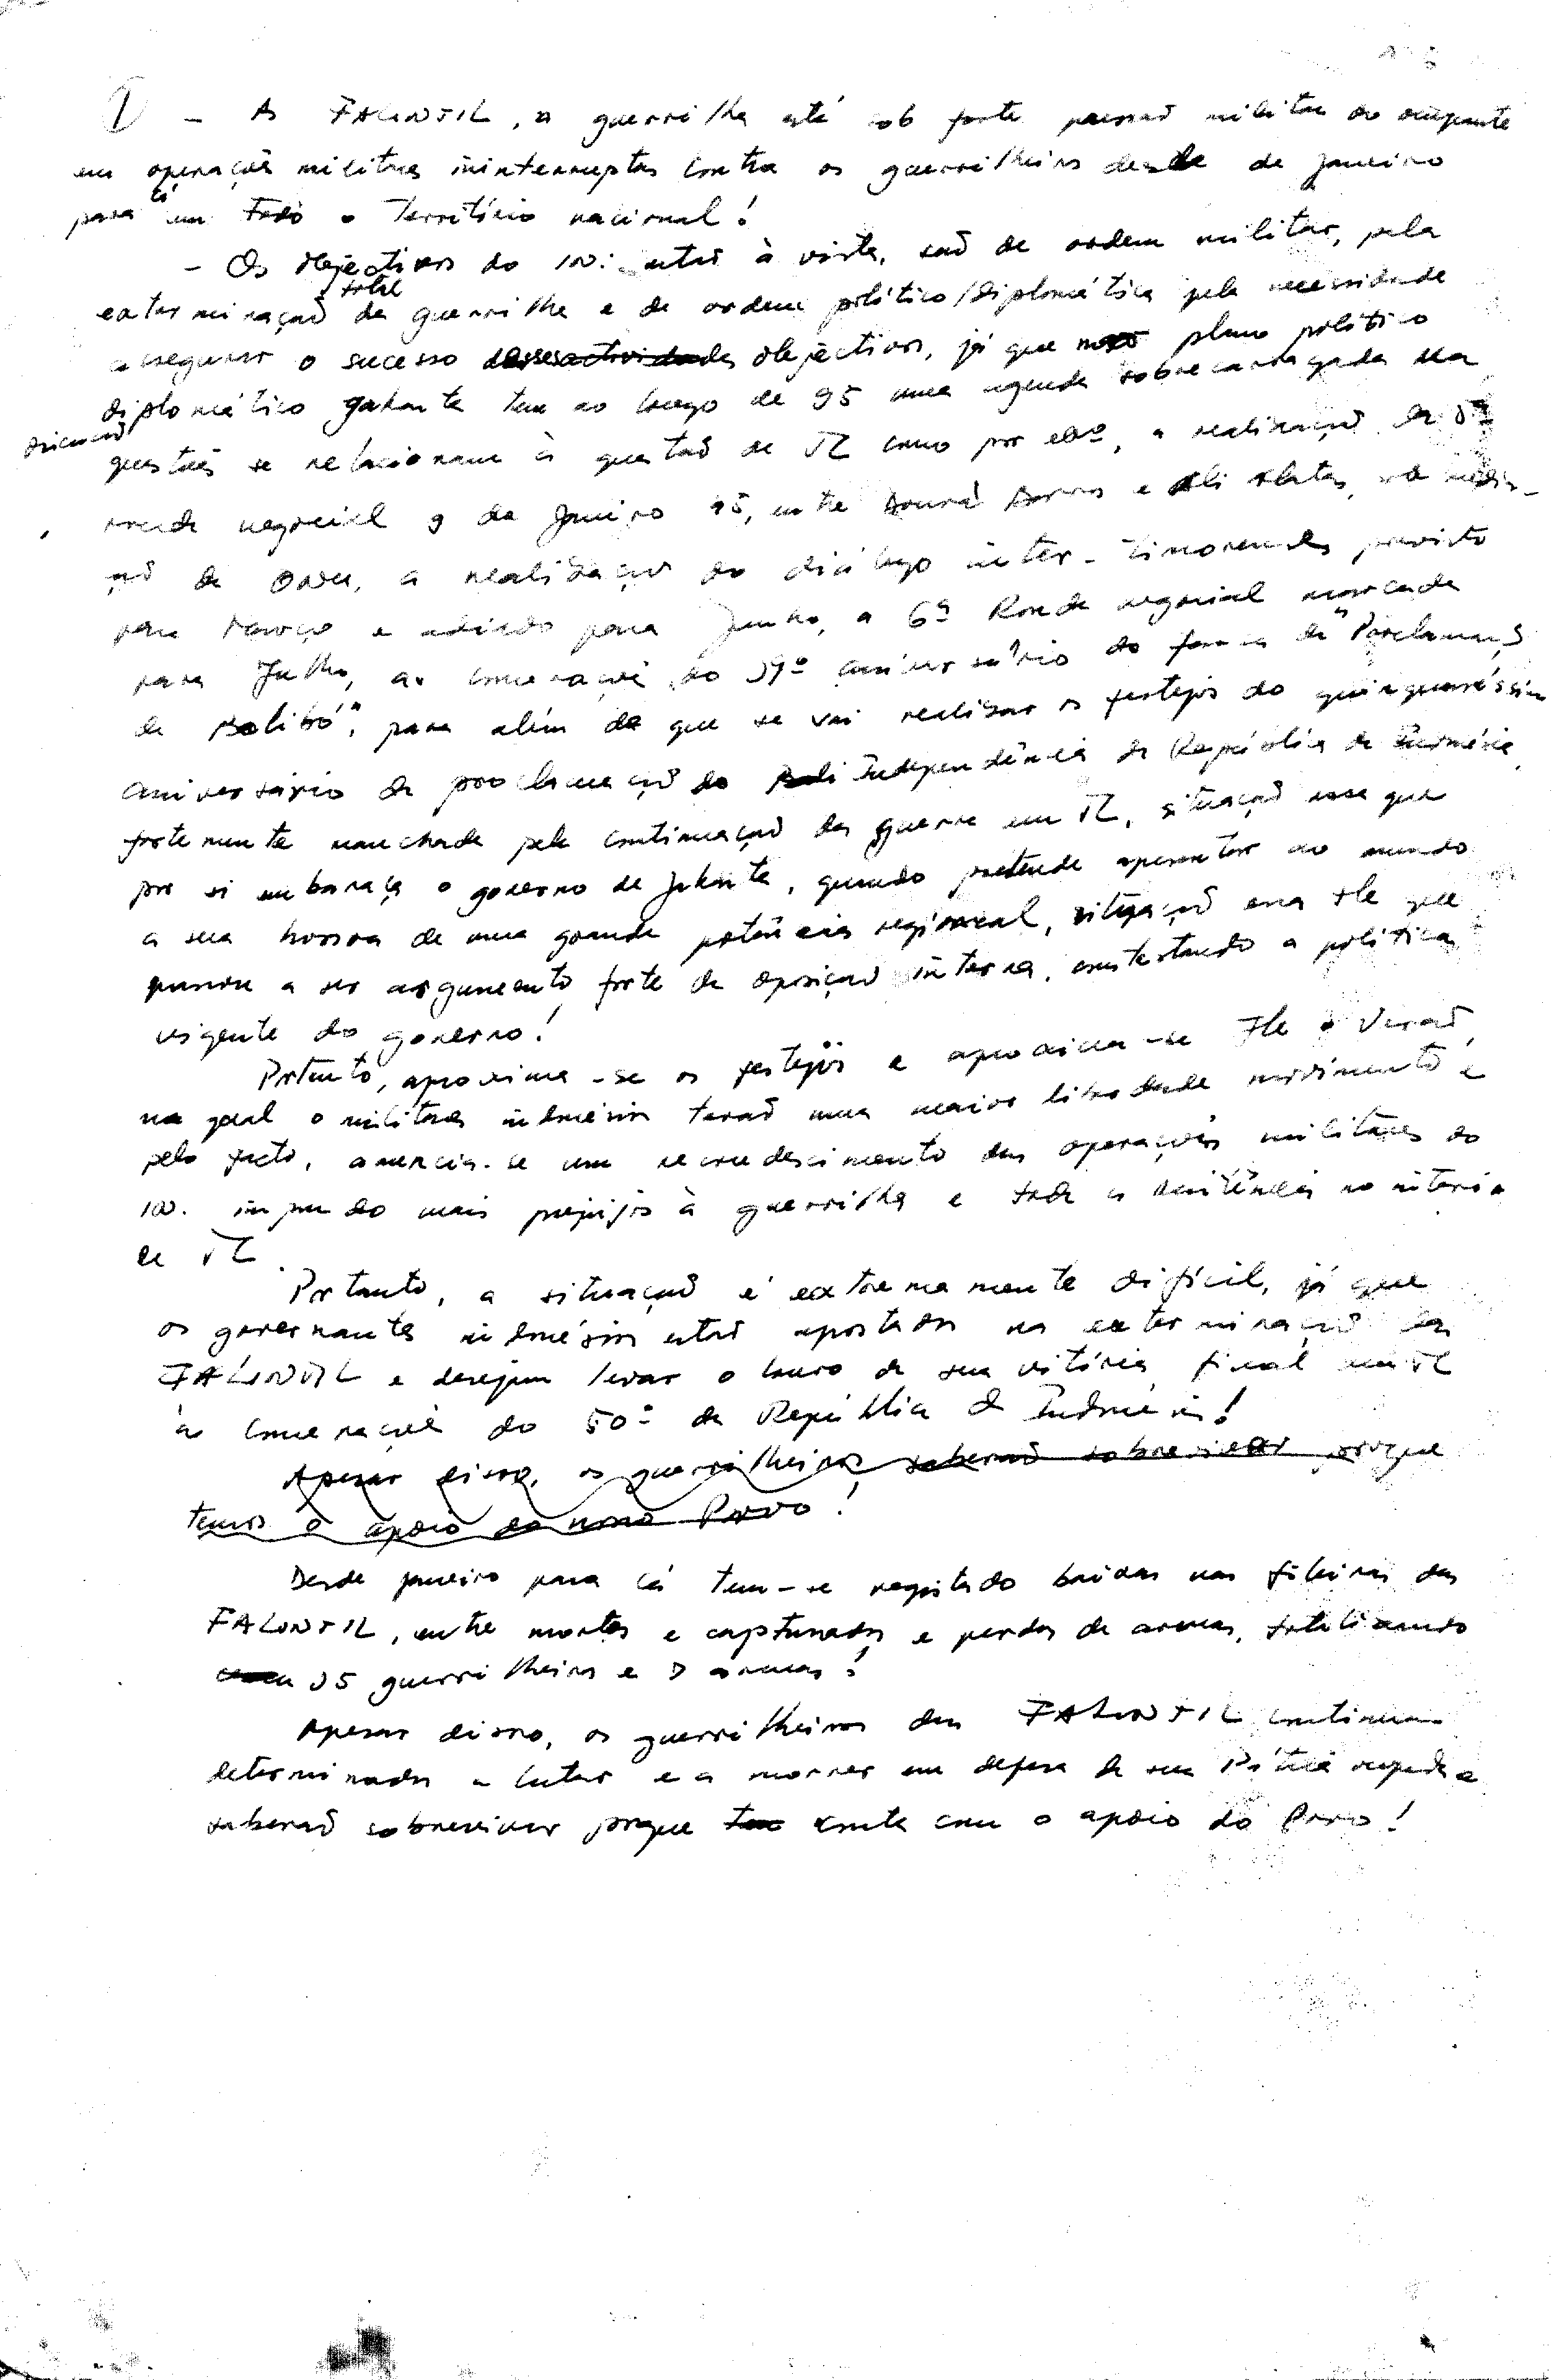 1 - As FALINTIL, a guerrilha está sob forte pressão militar do ocupante
em operações militares ininterruptas contra os guerrilheiros desde de Janeiro
para cá em Todo o Território nacional!
- Os objectivos do IN: estão à vista, são de ordem militar, pela
exterminação total da guerrilha e de ordem político/diplomática pela necessidade
assegurar o sucesso desses actividades objectivos, já que no plano político
diplomático Jakarta tem ao longo de 95 uma agenda sobrecarregada
questões se relacionam à questão de TL como por exº, a realização da 5ª
ronda negocial 9 de Janeiro 95, entre Durão Barroso e Ali Alatas, sob media-
ção da ONU, a realização do diálogo inter-timorenses previsto
para Março e adiado para Junho, a 6ª Ronda negocial marcada
para Julho, as comemorações do 19º aniversário da farsa da "Proclamação
de Balibó", para além de que se vai realizar os festejos do quinquagéssimo
aniversário da proclamação da Independência da República da Indonésia
fortemente manchada pela continuação da guerra em TL, situação essa que
por si embaraça o governo de Jakarta, quando pretende apresentar ao mundo
a sua honra de uma grande potência regional, situação essa que
passou a ser argumento forte da oposição interna, contestando a política
vigente do governo!
Portanto, aproxima-se os festejos e aproxima-se o Verão,
na qual o militares indonésios terão uma maior liberdade movimento e
pelo facto, anuncia-se um recrudescimento das operações militares do
IN. impondo mais prejuízos à guerrilha e toda a resistência no interior
de TL.
Portanto, a situação é extremamente difícil, já que
os governantes indonésios estão apostados na exterminação das
FALINTIL e desejam levar o louro da sua vitória final em TL
às comemorações do 50º da República da Indonésia!
Apesar disso, os guerrilheiros saberão sobreviver porque
temos o apoio do nosso Povo!
Desde janeiro para cá tem-se registado baixas nas fileiras das
FALINTIL, entre mortos e capturados e perdas de armas, totalizando
35 guerrilheiros e armas!
Apesar disso, os guerrilheiros das FALINTIL continuam
determinados a lutar e a morrer em defesa da sua Pátria ocupada e
saberão sobreviver porque conta com o apoio do Povo!